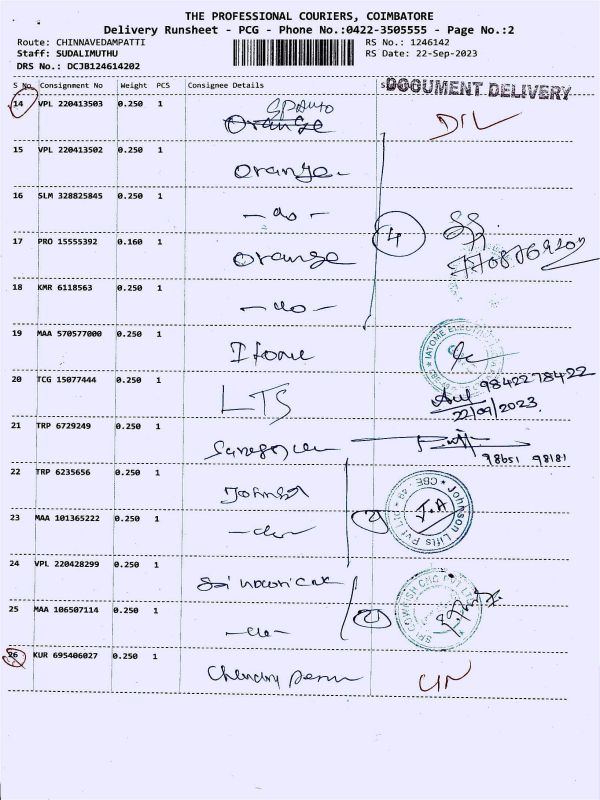 THE PROFESSIONAL COURIERS, COIMBATORE
Delivery Runsheet - PCG - Phone No.:0422-3505555 - Page No.:2
Route: CHINNAVEDAMPATTI RS No.: 1246142
Staff: SUDALIMUTHU RS Date: 22-Sep-2023
DRS No.: DCJB124614202
S No. Consignment No Weight PCS Consignee Details
DOCUMENT DELIVERY
14 VPL 220413503 0.250 1 Orange
15 VPL 220413502 0.250 1 Orange
16 SLM 328825845 0.250 1 - do -
17 PRO 15555392 0.160 1 Orange 4
18 KMR 6118563 0.250 1 - do -
19 MAA 570577000 0.250 1
20 TCG 15077444 0.250 1 LTS 9842278422
22/09/2023
21 TRP 6729249 0.250 1
98651 98181
22 TRP 6235656 0.250 1 Johnson Lifts Pvt Ltd CBE J.A
23 MAA 101365222 0.250 1 - do - 2
24 VPL 220428299 0.250 1
25 MAA 106507114 0.250 1 - do - 2
26 KUR 695406027 0.250 1